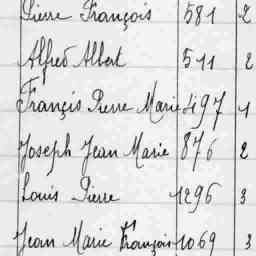 Pierre François 581 2
Alfred Albert 511 2
Françis Pierre Marie 497 1
Joseph Jean Marie 876 2
Louis Pierre 1296 3
Jean Marie François 1069 3